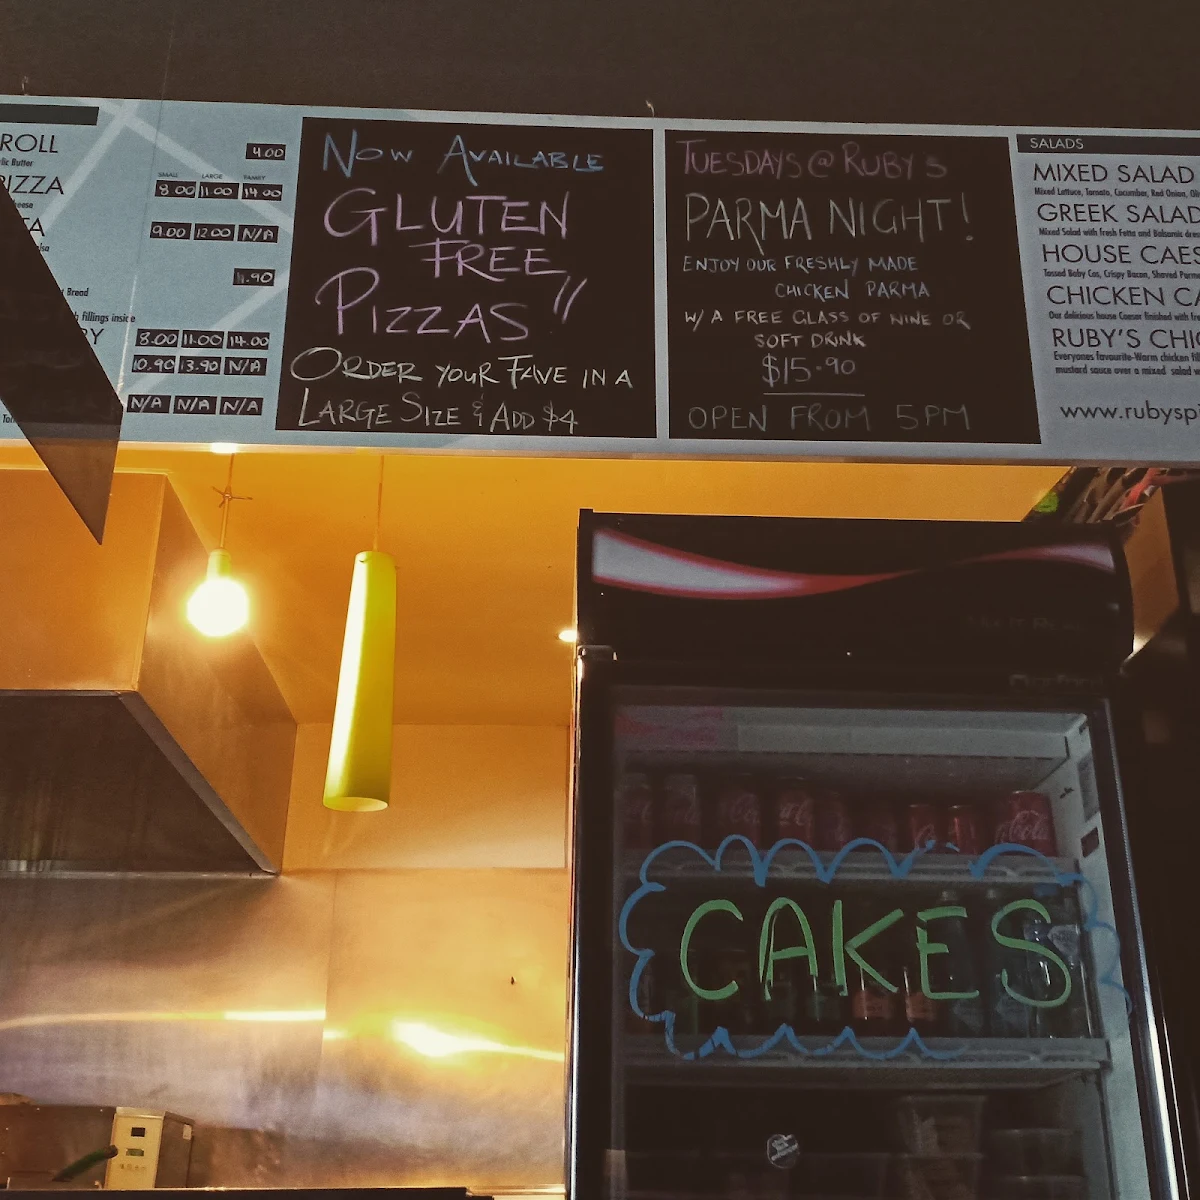 ROLL
lic Butter
4.00
SMALL LARGE FAMILY
PIZZA
8.00 11.00 14.00
TA
9.00 12.00 N/A
Bread
fillings inside
8.00 11.00 14.00
10.90 13.90 N/A
N/A N/A N/A
NOW AVAILABLE
GLUTEN
FREE
PIZZAS
ORDER YOUR FAVE IN A
LARGE SIZE & ADD $4
TUESDAYS @ RUBY'S
PARMA NIGHT!
ENJOY OUR FRESHLY MADE
CHICKEN PARMA
W/ A FREE GLASS OF WINE OR
SOFT DRINK
$15.90
OPEN FROM 5PM
SALADS
MIXED SALAD
Mixed Lettuce, Tomato, Cucumber, Red Onion,
GREEK SALAD
Mixed Salad with fresh Fetta and Balsamic
HOUSE CAES
Tossed Baby Cos, Crispy Bacon, Shaved
CHICKEN CA
Our delicious house Caeser finished with
RUBY'S CHI
Everyones favourite-Warm chicken
mustard sauce over a mixed salad
www.rubysp
Coca-Cola
CAKES